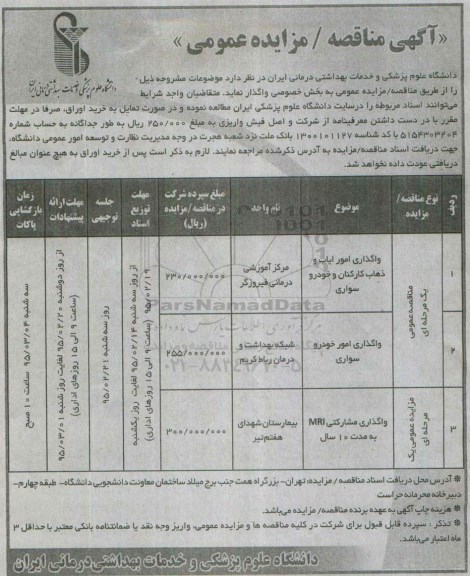 «آگهی مناقصه / مزایده عمومی»
دانشگاه علوم پزشکی و خدمات بهداشتی درمانی ایران
دانشگاه علوم پزشکی و خدمات بهداشتی درمانی ایران در نظر دارد موضوعات مشروحه ذیل
را از طریق مناقصه/مزایده عمومی به بخش خصوصی واگذار نماید. متقاضیان واجد شرایط
می‌توانند اسناد مربوطه را درسایت دانشگاه علوم پزشکی ایران مطالعه نموده و در صورت تمایل به خرید اوراق، صرفا در مهلت
مقرر با در دست داشتن معرفینامه از شرکت و اصل فیش واریزی به مبلغ ۲۵۰/۰۰۰ ریال به طور جداگانه به حساب شماره
۵۱۵۴۳۰۳۲۰۴ با کد شناسه ۱۳۰۰۱۰۱۱۲۷ بانک ملت نزد شعبه هجرت در وجه مدیریت نظارت و توسعه امور عمومی دانشگاه،
جهت دریافت اسناد مناقصه/مزایده به آدرس ذکرشده مراجعه نمایند. لازم به ذکر است پس از خرید اوراق به هیچ عنوان مبالغ
دریافتی عودت داده نخواهد شد.
ردیف | نوع مناقصه/مزایده | موضوع | نام واحد | مبلغ سپرده شرکت در مناقصه/مزایده (ریال) | مهلت توزیع اسناد | جلسه توجیهی | مهلت ارائه پیشنهادات | زمان بازگشایی پاکات
۱ | مناقصه عمومی یک مرحله ای | واگذاری امور ایاب و ذهاب کارکنان و خودرو سواری | مرکز آموزشی درمانی فیروزگر | ۲۳۰/۰۰۰/۰۰۰
۲ | واگذاری امور خودرو سواری | شبکه بهداشت و درمان رباط کریم | ۲۵۵/۰۰۰/۰۰۰
۳ | مزایده عمومی یک مرحله ای | واگذاری مشارکتی MRI به مدت ۱۰ سال | بیمارستان شهدای هفتم تیر | ۳۰۰/۰۰۰/۰۰۰
از روز سه شنبه ۹۵/۰۲/۱۴ لغایت روز یکشنبه ۹۵/۰۲/۱۹ (ساعت ۹ الی ۱۵ روزهای اداری)
روز سه شنبه ۹۵/۰۲/۲۱
از روز دوشنبه ۹۵/۰۲/۲۰ لغایت روز شنبه ۹۵/۰۳/۰۱ (ساعت ۹ الی ۱۵ روزهای اداری)
سه شنبه ۹۵/۰۳/۰۴ ساعت ۱۰ صبح
ParsNamadData
۰۲۱-۸۸۳۴۹۶۷۰-۵
* آدرس محل دریافت اسناد مناقصه/مزایده تهران- بزرگراه همت جنب برج میلاد ساختمان معاونت دانشجویی دانشگاه- طبقه چهارم-
دبیرخانه محرمانه حراست
* هزینه چاپ آگهی به عهده برنده مناقصه/مزایده می‌باشد.
* تذکر : سپرده قابل قبول برای شرکت در کلیه مناقصه ها و مزایده عمومی، واریز وجه نقد یا ضمانتنامه بانکی معتبر با حداقل ۳
ماه اعتبار می‌باشد.
دانشگاه علوم پزشکی و خدمات بهداشتی درمانی ایران